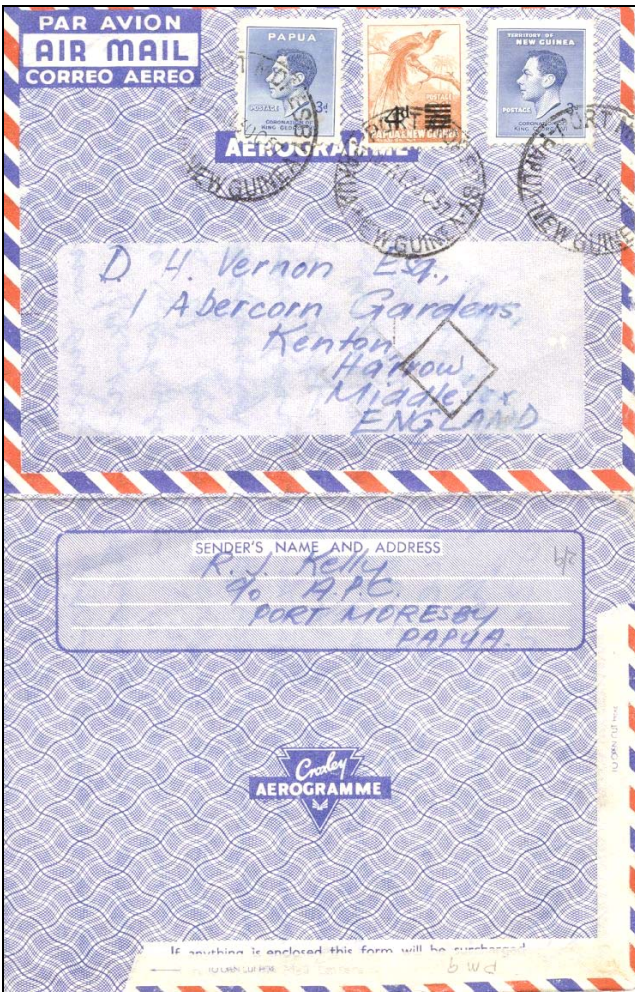 PAR AVION
AIR MAIL
CORREO AEREO
PAPUA
POSTAGE 3d
CORONATION OF
KING GEORGE
4d POSTAGE
PAPUA & NEW GUINEA
TERRITORY OF
NEW GUINEA
POSTAGE
CORONATION OF
KING GEORGE
AEROGRAMME
NEW GUINEA
PAPUA-NEW GUINEA
PORT
PAPUA-NEW GUINE
D. H. Vernon Esq.,
1 Abercorn Gardens,
Kenton,
Harrow,
Middlesex
ENGLAND
SENDER'S NAME AND ADDRESS
R. J. Kelly
c/o A.P.C.
PORT MORESBY
PAPUA.
2/9
TO OPEN CUT HERE
Croxley
AEROGRAMME
If anything is enclosed this form will be surcharged
TO OPEN CUT HERE